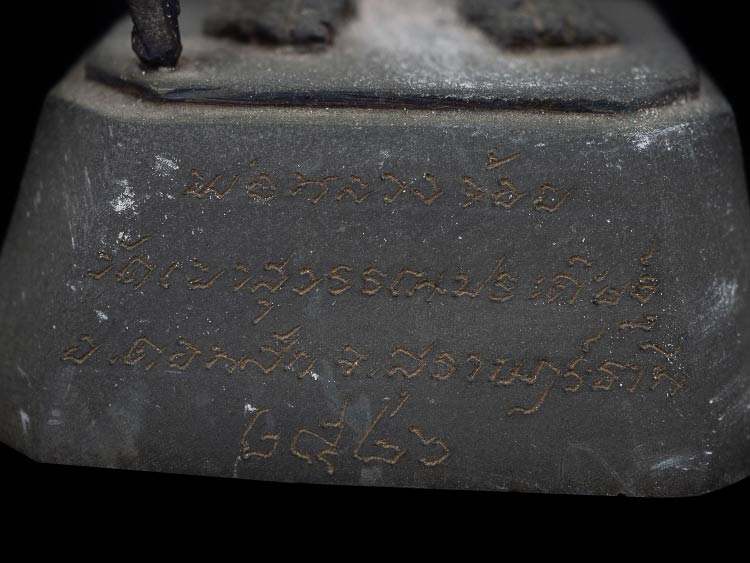 พ่อหลวงร้อย
วัดเขาสุวรรณประดิษฐ์
อ.ดอนสัก จ.สุราษฎร์ธานี
๒๕๒๖